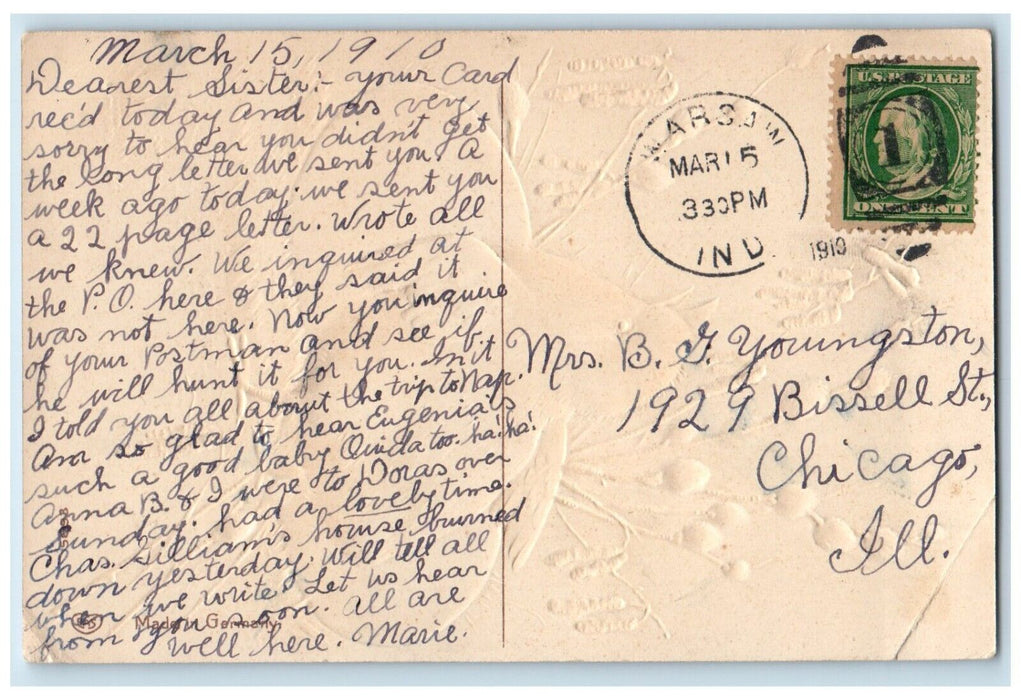 March 15, 1910
Dearest Sister:- your Card
rec'd today and was very
sorry to hear you didn't get
the long letter we sent you. A
week ago today we sent you
a 22 page letter. Wrote all
we knew. We inquired at
the P.O. here & they said it
was not here. Now you inquire
of your Postman and see if
he will hunt it for you. In it
I told you all about the trip to Nap.
Am so glad to hear Eugenia's
such a good baby Ouida too. ha! ha!
Anna B. & I were to Doras over
Sunday. had a lovely time.
Chas. Gilliam's house burned
down yesterday. Will tell all
when we write. Let us hear
from you soon. All are
well here. Marie.
Made in Germany
WARSAW
MAR 15
330PM
IND
1910
U.S. POSTAGE
1
ONE CENT
Mrs. B. G. Youngston,
1929 Bissell St.,
Chicago,
Ill.